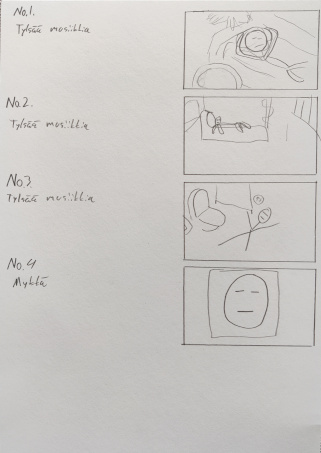 No.1.
Tylsää musiikkia
No.2.
Tylsää musiikkia
No.3.
Tylsää musiikkia
No.4
Mykkä